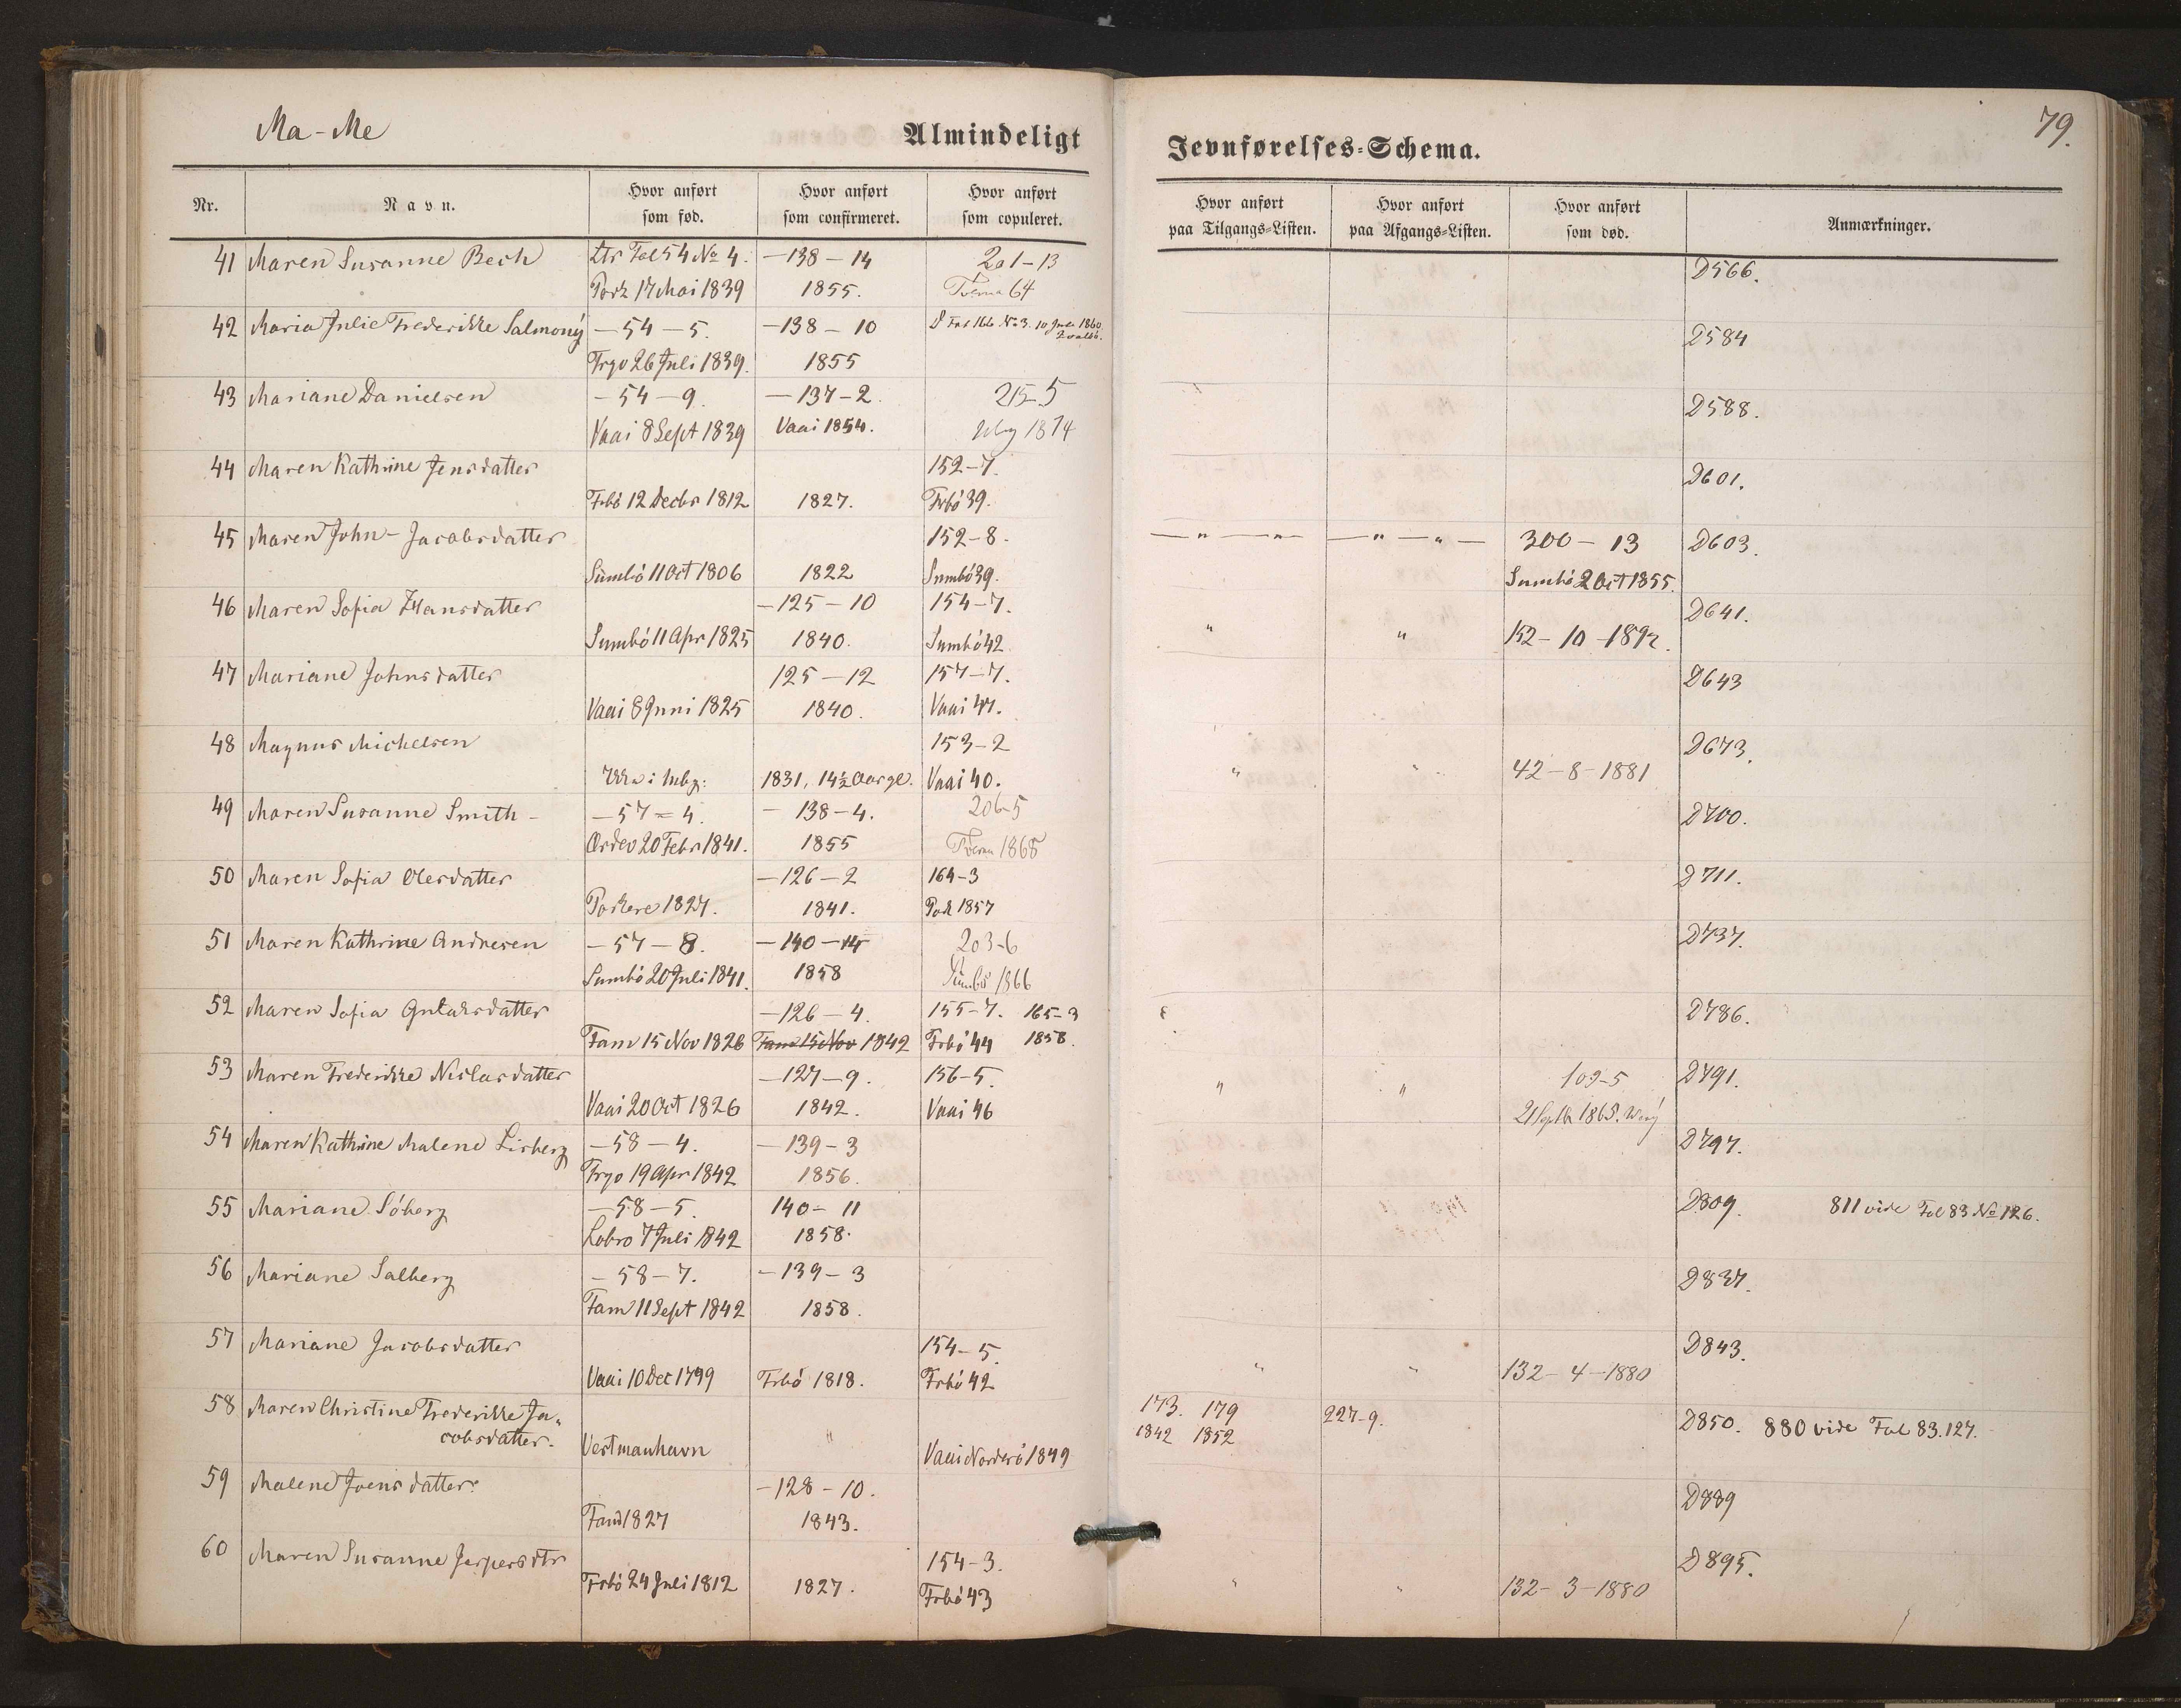 Ma-Me
Almindeligt
Jevnførelses-Schema.
79.
Nr. Navn. Hvor anført som fød. Hvor anført som confirmeret. Hvor anført som copuleret. Hvor anført paa Tilgangs-Listen. Hvor anført paa Afgangs-Listen. Hvor anført som død. Anmærkninger.
41 Maren Susanne Bech Fol 54 No 4. —138—14 201—13 D566.
17 Mai 1839 1855. 64
42 Maria Julie Frederikke Salmony —54—5. —138—10 D Fol 166. No 3. 1860 D584
26 Juli 1839. 1855
43 Mariane Danielsen —54—9. —137—2 215-5 D588.
Vaai 8 Sept 1839 Vaai 1854. 1874
44 Maren Kathrine Jensdatter 152—7. D601.
Frbö 12 Decbr 1812 1827. Frbö 39.
45 Maren John-Jacobsdatter 152-8. —"——"— —"—"— 300— 13 D603.
Sumbö 11 Oct 1806 1822 Sumbö 39. Sumbö 2 Oct 1855.
46 Maren Sofia Hansdatter —125—10 154—7. D641.
Sumbö 11 Apr 1825 1840. Sumbö 42 " " 152-10-1892.
47 Mariane Johnsdatter 125—12 157—7. D643
Vaai 8 Juni 1825 1840. Vaai 47.
48 Magnus Michelsen 153—2 D673.
1831, 14½ Aar gl. Vaai 40. " " 42-8-1881
49 Maren Susanne Smith — —57=4. — 138—4. 206-5 D700.
20 Febr 1841. 1855 1868
50 Maren Sofia Olesdatter —126—2 164-3 D711.
Porkere 1827. 1841. Pork 1857
51 Maren Kathrine Andresen —57—8. —140—14 203-6 D737.
Sumbö 20 Juli 1841. 1858 Sumbö 1866
52 Maren Sofia Gutaksdatter —126—4. 155—7. 165-3 D786.
Fam 15 Nov 1826 Fam 15 Nov 1842 Frbö 44 1858.
53 Maren Frederikke Niclasdatter —127—9. 156-5. 109-5 D791.
Vaai 20 Oct 1826 1842. Vaai 46 " " 21 Sept 1865.
54 Maren Kathrine Malene Lisberg —58—4. —139—3 D797.
19 Apr 1842 1856.
55 Mariane Söberg —58—5. 140— 11 D809. 811 vide Fol 83 No 126.
7 Juli 1842 1858.
56 Mariane Salberg —58—7. —139—3 D837.
Fam 11 Sept 1842 1858.
57 Mariane Jacobsdatter 154—5. D843.
Vaai 10 Dec 1799 Frbö 1818. Frbö 42 " " 132-4-1880
58 Maren Christine Frederikke Ja- 173. 179 227-9. D850. 880 vide Fol 83.127.
cobsdatter. Vestmanhavn " Vaai Norderö 1849 1842 1852
59 Malene Joensdatter. —128—10. D889
1827 1843.
60 Maren Susanne Jespersdtr 154-3. D895.
Frbö 24 Juli 1812 1827. Frbö 43 " " 132-3-1880